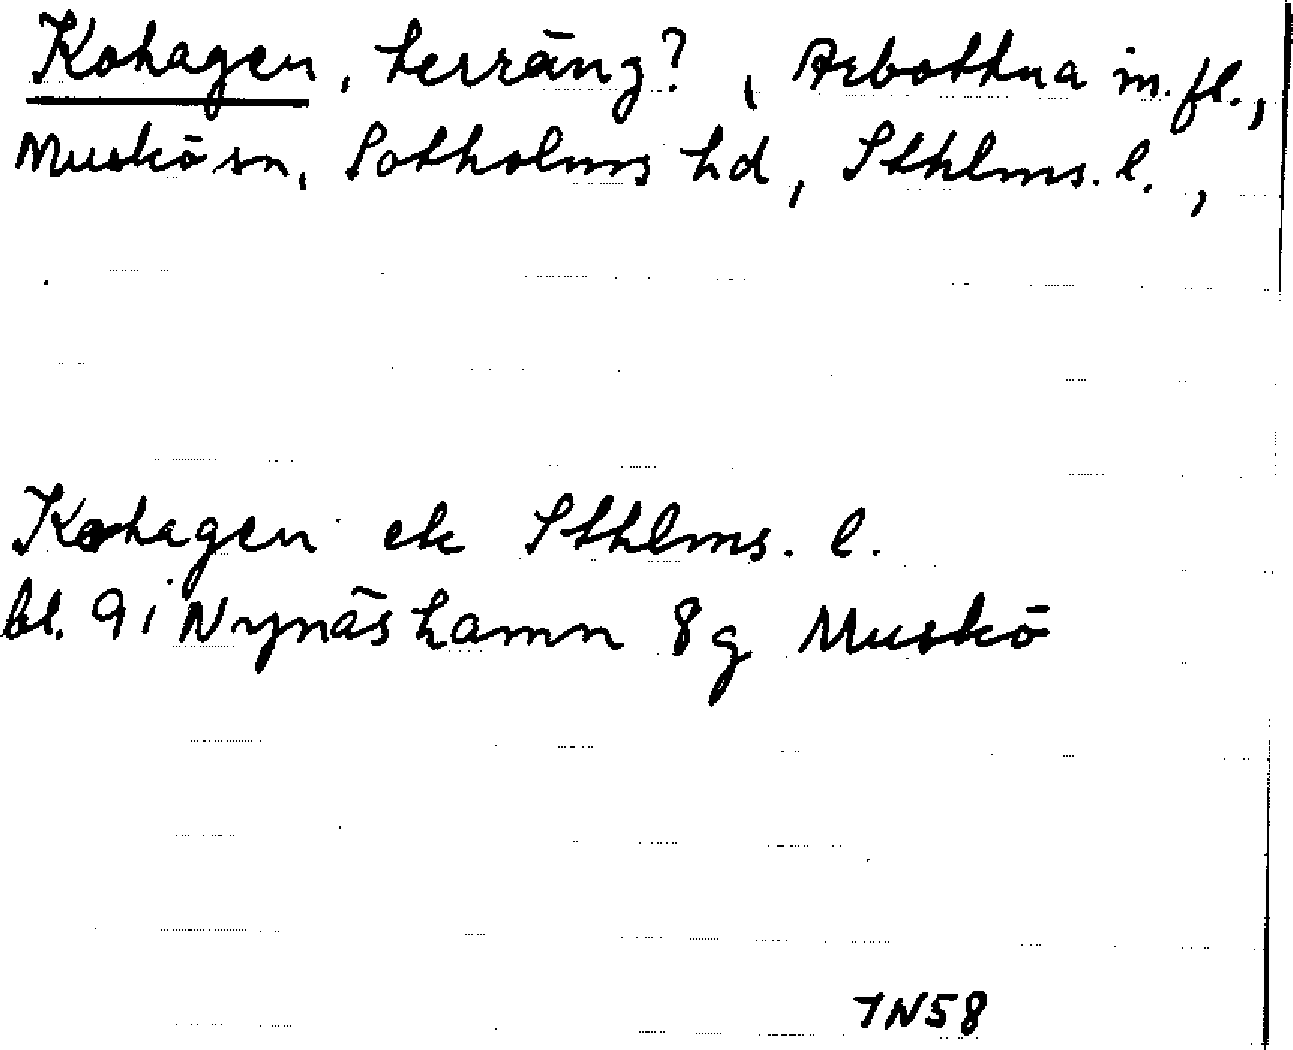 Kohagen, terräng?, Arbottna m.fl.,
Muskö sn, Sotholms hd, Sthlms. l.,
Kohagen ek Sthlms. l.
bl. 9 i Nynäshamn 8g Muskö
7N58